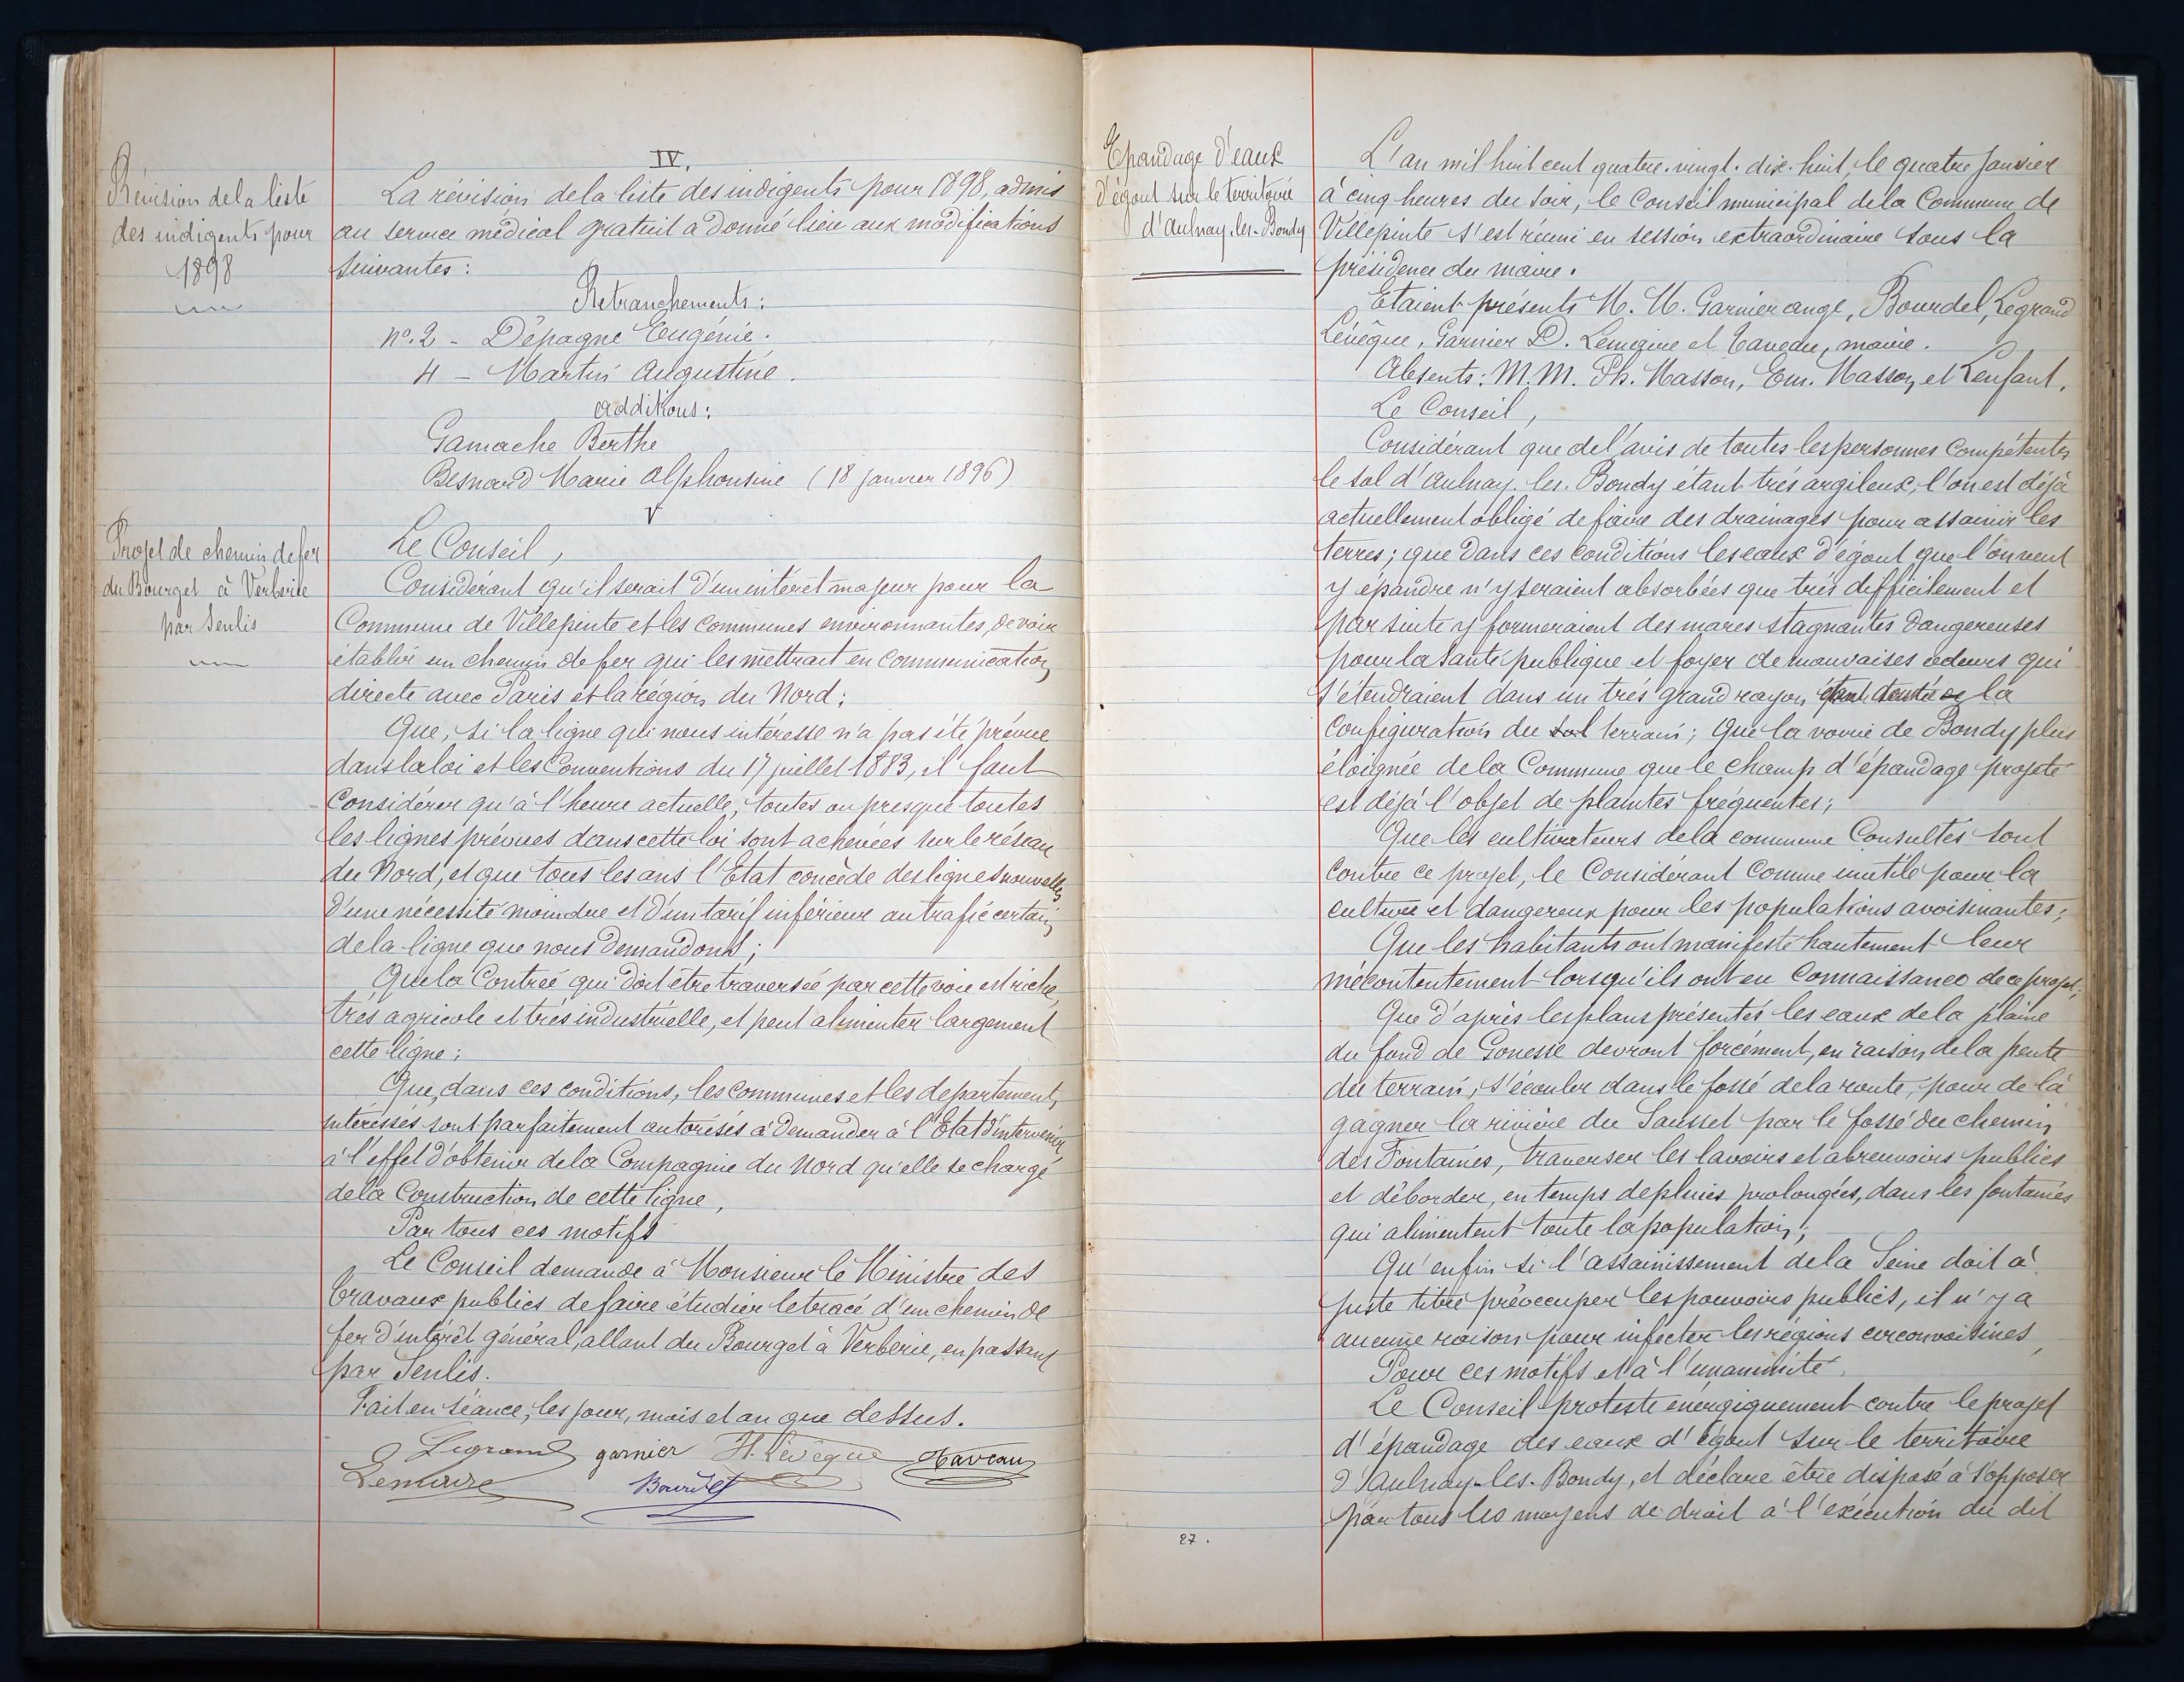 Révision de la liste
des indigents pour
1898
IV.
La révision de la liste des indigents pour 1898, admis
au service médical gratuit a donné lieu aux modifications
suivantes :
Retranchements :
n°. 2 - Dépagne Eugénie.
4 - Martin Augustine.
additions :
Gamache Berthe
Besnard Marie Alphonsine (18 janvier 1896)
V
Projet de chemin de fer
du Bourget à Verberie
par Senlis
Le Conseil,
Considérant qu'il serait d'un intérêt majeur pour la
Commune de Villepinte et les communes environnantes, de voir
établir un chemin de fer qui les mettrait en communication
directe avec Paris et la région du Nord :
Que, si la ligne qui nous intéresse n'a pas été prévue
dans la loi et les Conventions du 17 juillet 1883, il faut
Considérer qu'à l'heure actuelle, toutes ou presque toutes
les lignes prévues dans cette loi sont achevées sur le réseau
du Nord, et que tous les ans l'Etat concède des lignes nouvelles
d'une nécessité moindre et d'un tarif inférieur au trafic certain
de la ligne que nous demandons ;
Que la Contrée qui doit être traversée par cette voie est riche
très agricole et très industrielle, et peut alimenter largement
cette ligne :
Que, dans ces conditions, les communes et les departements
intéressés sont parfaitement autorisés à demander à l'Etat d'intervenir
à l'effet d'obtenir de la Compagnie du Nord qu'elle se charge
de la Construction de cette ligne,
Par tous ces motifs
Le Conseil demande à Monsieur le Ministre des
Travaux publics de faire étudier le tracé d'un chemin de
fer d'intérêt général, allant du Bourget à Verberie, en passant
par Senlis.
Fait en séance, les jour, mois et an que dessus.
Legrand garnier H. Lévêque Taveau
Lemaire Bourdel
Epandage d'eaux
d'égout sur le territoire
d'Aulnay-les-Bondy
L'an mil huit cent quatre-vingt-dix-huit, le quatre Janvier
à cinq heures du soir, le Conseil municipal de la Commune de
Villepinte s'est réuni en session extraordinaire sous la
présidence du maire.
Etaient présents M. M. Garnier ange, Bourdel, Legrand
Lévêque, Garnier D. Lemaire et Taveau, maire.
Absents : M. M. Ph. Masson, Em. Masson, et Lenfant.
Le Conseil,
Considérant que de l'avis de toutes les personnes Compétentes
le sol d'Aulnay-les-Bondy étant très argileux, l'on est déjà
actuellement obligé de faire des drainages pour assainir les
terres ; que dans ces conditions les eaux d'égout que l'on veut
y épandre n'y seraient absorbées que très difficilement et
par suite y formeraient des mares stagnantes dangereuses
pour la santé publique et foyer de mauvaises odeurs qui
s'étendraient dans un très grand rayon, étant donnée la
configuration du sol terrain ; Que la voirie de Bondy plus
éloignée de la Commune que le champ d'épandage projeté
est déjà l'objet de plaintes fréquentes ;
Que les cultivateurs de la commune Consultés sont
Contre ce projet, le Considérant Comme inutile pour la
culture et dangereux pour les populations avoisinantes ;
Que les habitants ont manifesté hautement leur
mécontentement lorsqu'ils ont eu Connaissance de ce projet ;
Que d'après les plans présentés les eaux de la plaine
du fond de Gonesse devront forcément, en raison de la pente
du terrain, s'écouler dans le fossé de la route, pour de là
gagner la rivière du Sausset par le fossé du chemin
des Fontaines, traverser les lavoirs et abreuvoirs publics
et déborder, en temps de pluies prolongées, dans les fontaines
qui alimentent toute la population ;
Qu'enfin si l'assainissement de la Seine doit à
juste titre préoccuper les pouvoirs publics, il n'y a
aucune raison pour infecter les régions circonvoisines,
Pour ces motifs et à l'unanimité
Le Conseil proteste énergiquement contre le projet
d'épandage des eaux d'égout sur le territoire
d'Aulnay-les-Bondy, et déclare être disposé à s'opposer
par tous les moyens de droit à l'exécution du dit
27.